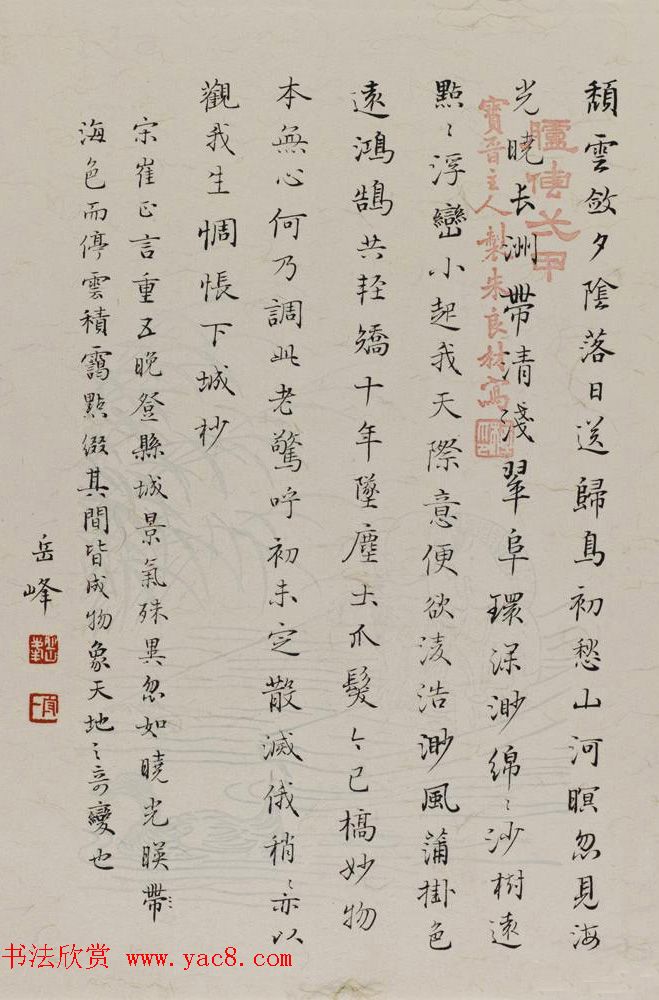 頹雲斂夕陰落日送歸鳥初愁山河暝忽見海
光曉長洲帶清淺翠阜環深渺綿〻沙樹遠
點〻浮巒小起我天際意便欲淩浩渺風蒲掛色
遠鴻鵠共輕矯十年墜塵土爪髮〻已槁妙物
本無心何乃調此老驚呼初未定散滅俄稍〻亦以
觀我生惆悵下城杪
宋崔正言重五晚登縣城景氣殊異忽如曉光暎帶
海色而停雲積靄點綴其間皆成物象天地〻奇變也
岳峰
臚傳之甲
寶晉主人製朱良材寫
书法欣赏 www.yac8.com